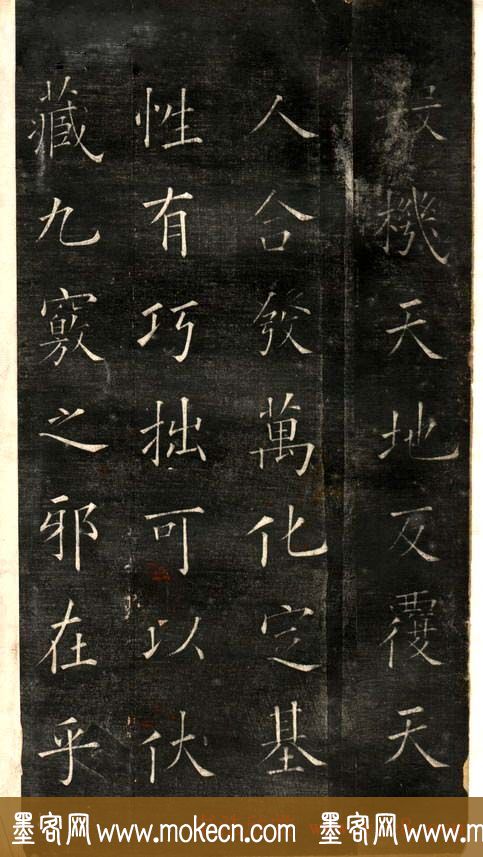 殺機天地反覆天
人合發萬化定基
性有巧拙可以伏
藏九竅之邪在乎
墨客网www.mokecn.com 墨客网www.mokecn.com